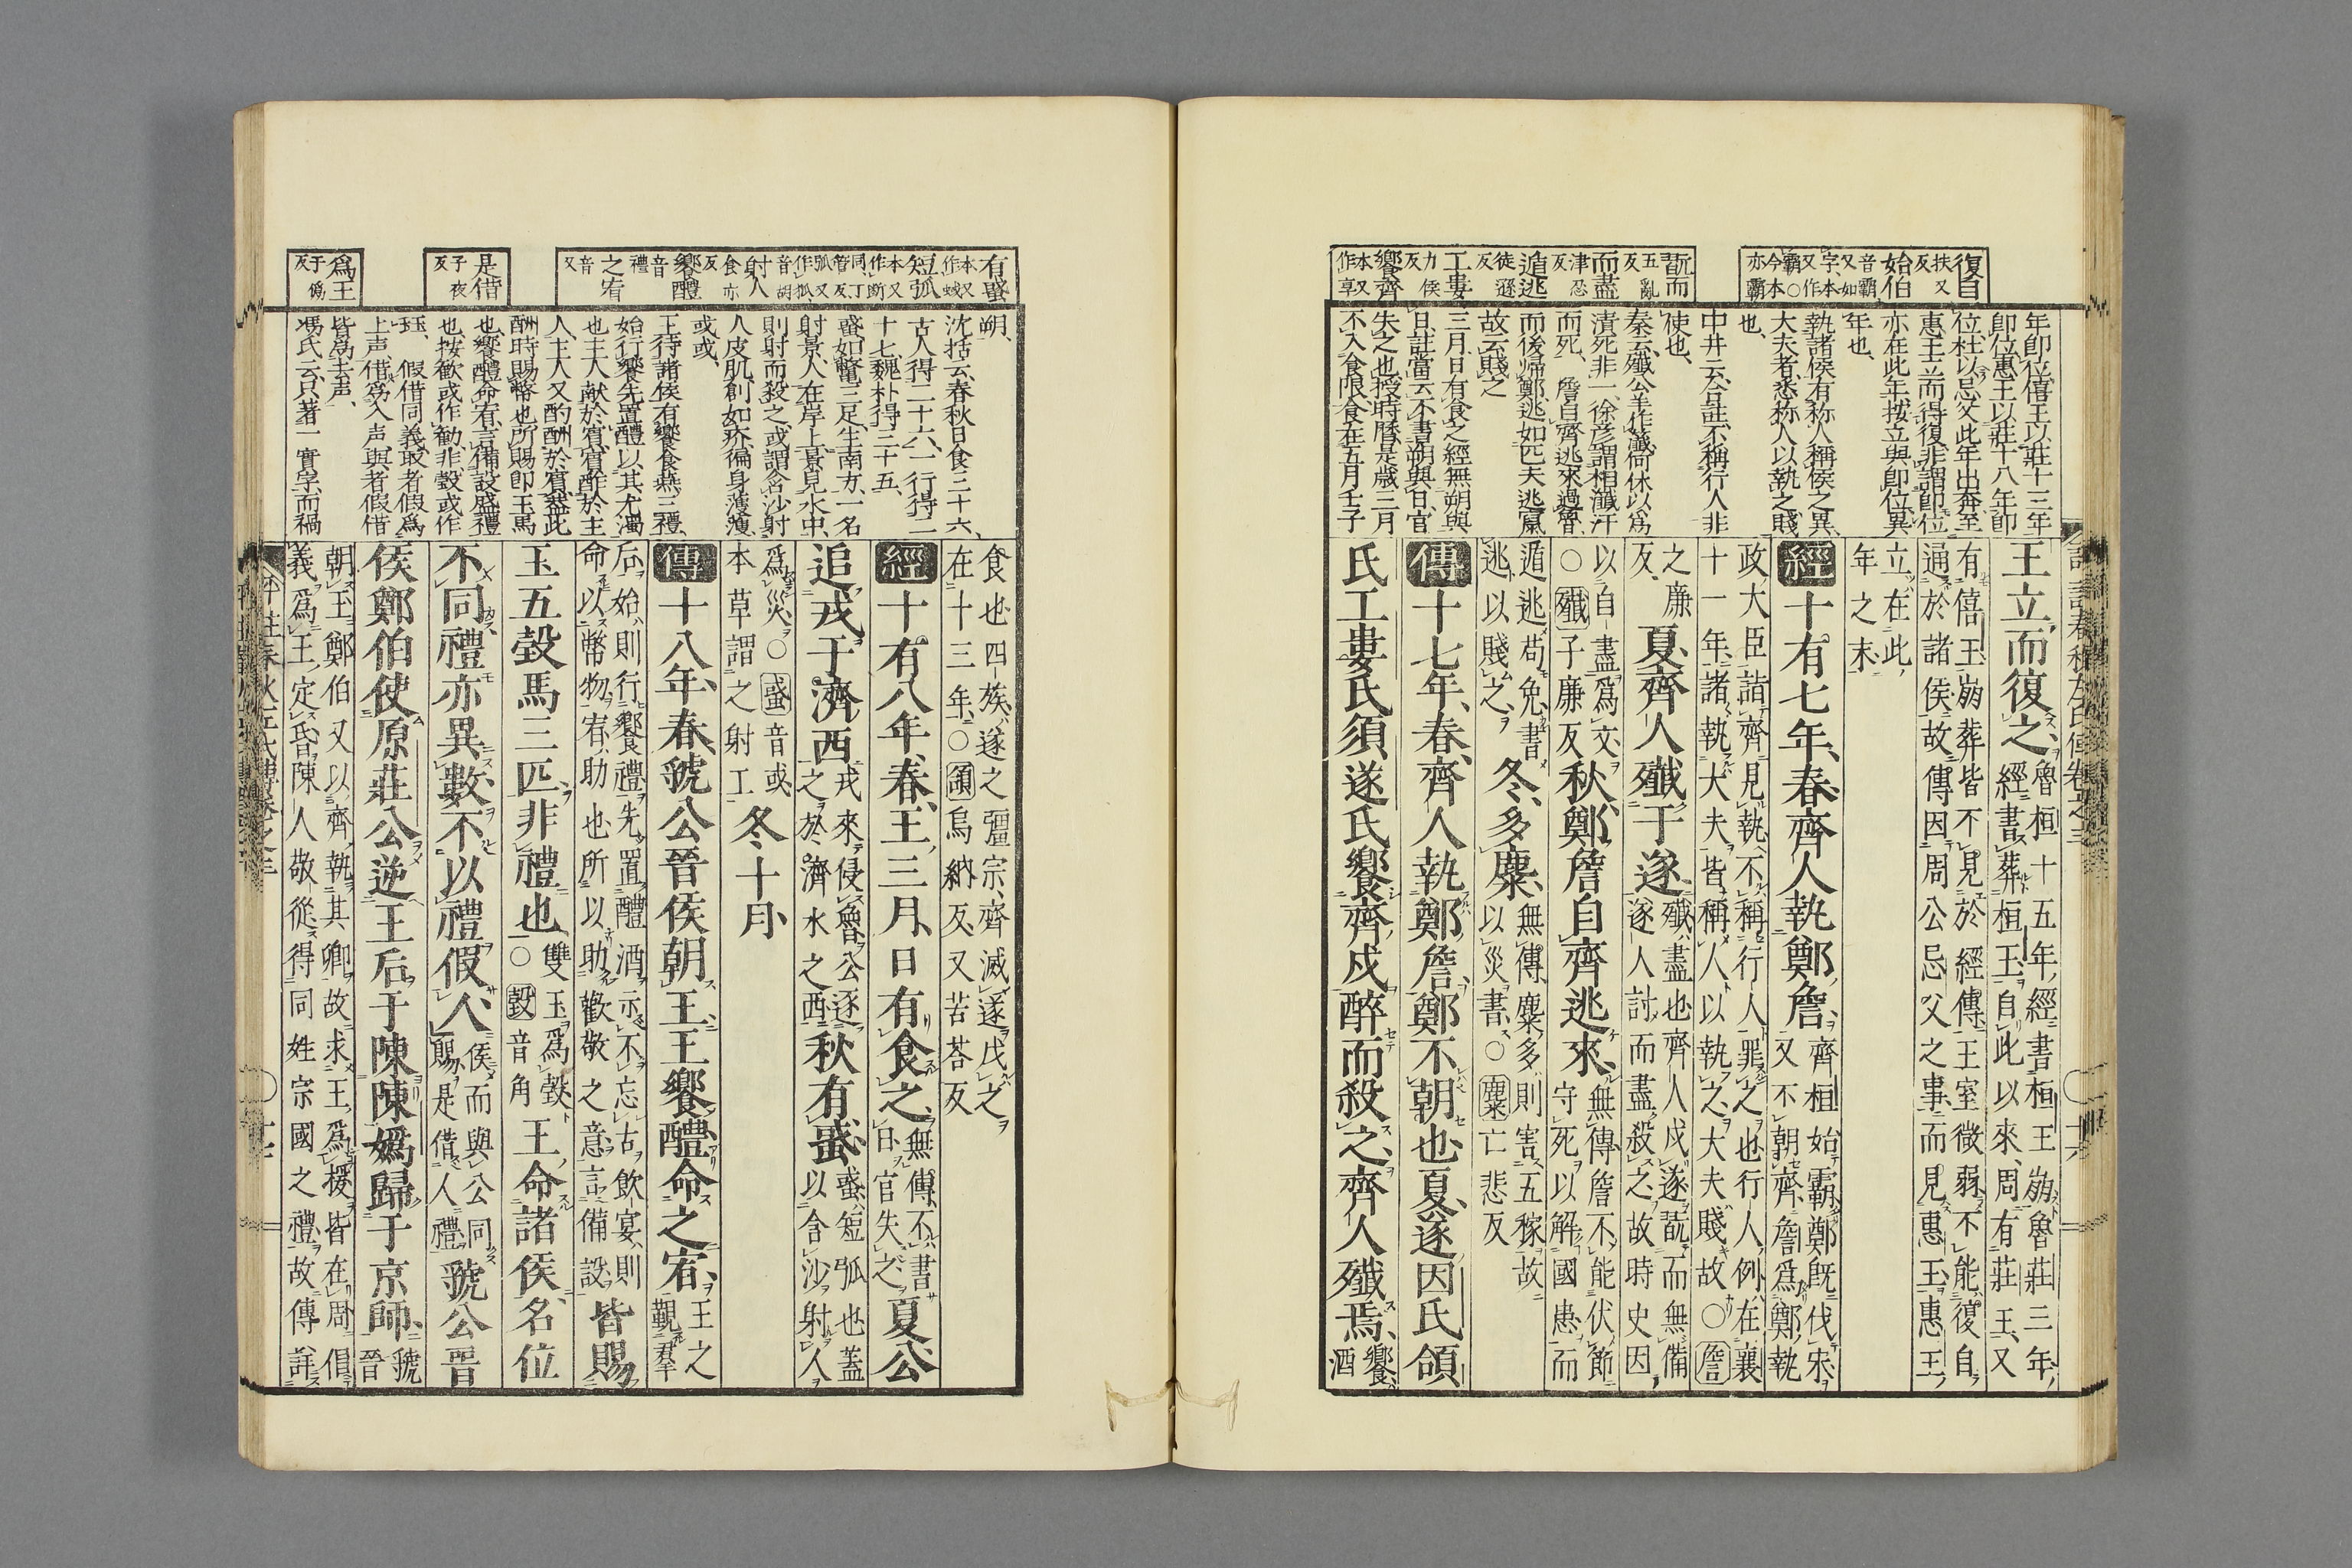 復自 扶又反 始伯 音霸又如字本又作霸○今本亦霸
翫而 五亂反 而盡 津忍反 遁逃 徒遜反 工婁 力侯反 饗齊 本又作享
年卽位僖王以莊十三年
卽位惠王以莊十八年卽
位杜以忌父此年出奔至
惠王立而得復非謂卽位
亦在此年按立與卽位異
年也
執諸侯有称人稱侯之異
大夫者悉称人以執之賤
也
中井云合註不稱行人非
使也
秦云殲公羊作瀸何休以爲
漬死非一徐彦謂相瀸汙
而死 詹自齊逃來過魯
而後歸鄭逃如匹夫逃竄
故云賤之
三月日有食之經無朔與
日註當云不書朔與日官
失之也授時曆是歲三月
不入食限食在五月壬子
王立而復之 魯桓十五年經書桓王崩魯莊三年經書葬桓王自此以來周有莊王又
有僖王崩葬皆不見於經傳王室微弱不能復自通於諸侯故傳因周公忌父之事而見惠王惠王
立在此年之末
經十有七年春齊人執鄭詹 齊桓始霸鄭旣伐宋又不朝齊詹爲鄭執
政大臣詣齊見執不稱行人罪之也行人例在襄十一年諸執大夫皆稱人以執之大夫賤故○詹
之廉反 夏齊人殲于遂 殲盡也齊人戍遂翫而無備遂人討而盡殺之故時史因
以自盡爲文○殲子廉反 秋鄭詹自齊逃來 無傳詹不能伏節守死以解國患而
遁逃苟免書逃以賤之 冬多麋 無傳麋多則害五稼故以災書○麋亡悲反
傳十七年春齊人執鄭詹鄭不朝也夏遂因氏頜
氏工婁氏須遂氏饗齊戍醉而殺之齊人殲焉 饗酒
有蜮 本又作蜮 短弧 本又作斷同丁管反弧又作狐音胡 射人 食亦反 饗醴 音禮 之宥 音又
是借 子夜反
爲王 于僞反
朔
沈括云春秋日食三十六
古人得二十六一行得二
十七魏朴得三十五
蜮如鼈三足生南方一名
射景人在岸上景見水中
則射而殺之或謂含沙射
人皮肌創如疥徧身濩濩
或或
王待諸侯有饗食燕三禮
始行饗先置醴以其尤濁
也主人献於賓賓酢於主
人主人又酌酬於賓葢此
酬時賜幣也所賜卽玉馬
也饗醴命宥言備設盛禮
也按歡或作勸非瑴或作
珏 假借同義取者假爲
上声借爲入声與者假借
皆爲去声
馮氏云只著一實字而禍
食也四族遂之彊宗齊滅遂戍之在十三年○頜烏納反又苦荅反
經十有八年春王三月日有食之 無傳不書日官失之 夏公
追戎于濟西 戎來侵魯公逐之於濟水之西 秋有蜮 蜮短弧也蓋以含沙射人
爲災○蜮音或本草謂之射工 冬十月
傳十八年春虢公晉侯朝王王饗醴命之宥 王之覲群
后始則行饗禮先置醴酒示不忘古飲宴則命以幣物宥助也所以助歡敬之意言備設 皆賜
玉五瑴馬三匹非禮也 雙玉爲瑴○瑴音角 王命諸侯名位
不同禮亦異數不以禮假人 侯而與公同賜是借人禮 虢公晉
侯鄭伯使原莊公逆王后于陳陳嬀歸于京師 虢晉
朝王鄭伯又以齊執其卿故求王爲援皆在周倡義爲王定昏陳人敬從得同姓宗國之禮故傳詳